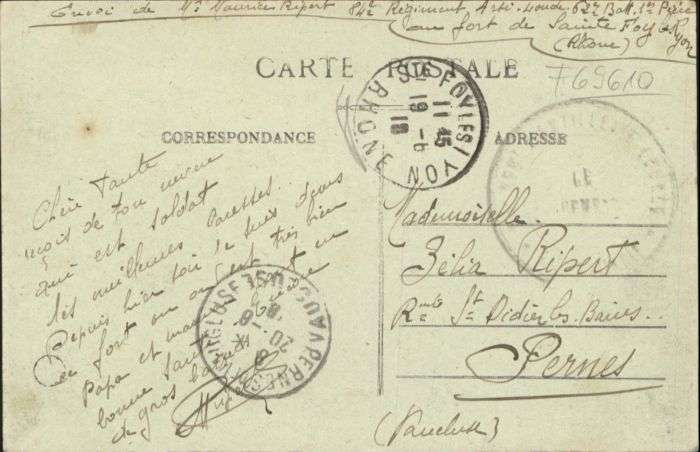 Envoi de Mr Maurice Ripert 84e Régiment Arti. Lourde 62e Batt. 1re Pièce
au fort de Sainte Foy les Lyon
(Rhône)
CARTE POSTALE
F69610
CORRESPONDANCE
ADRESSE
STE FOY LES LYON RHONE
11 45
19 -6
18
Chère Tante
reçois de ton neveu
qui est soldat
les meilleures caresses.
Depuis hier soir je suis dans
un fort ou on est très bien
Papa et
bonne santé
de gros
PERNES VAUCLUSE
20 -6
18
Mademoiselle
Zélia Ripert
Rte St Didier les Bains
Pernes
(Vaucluse)